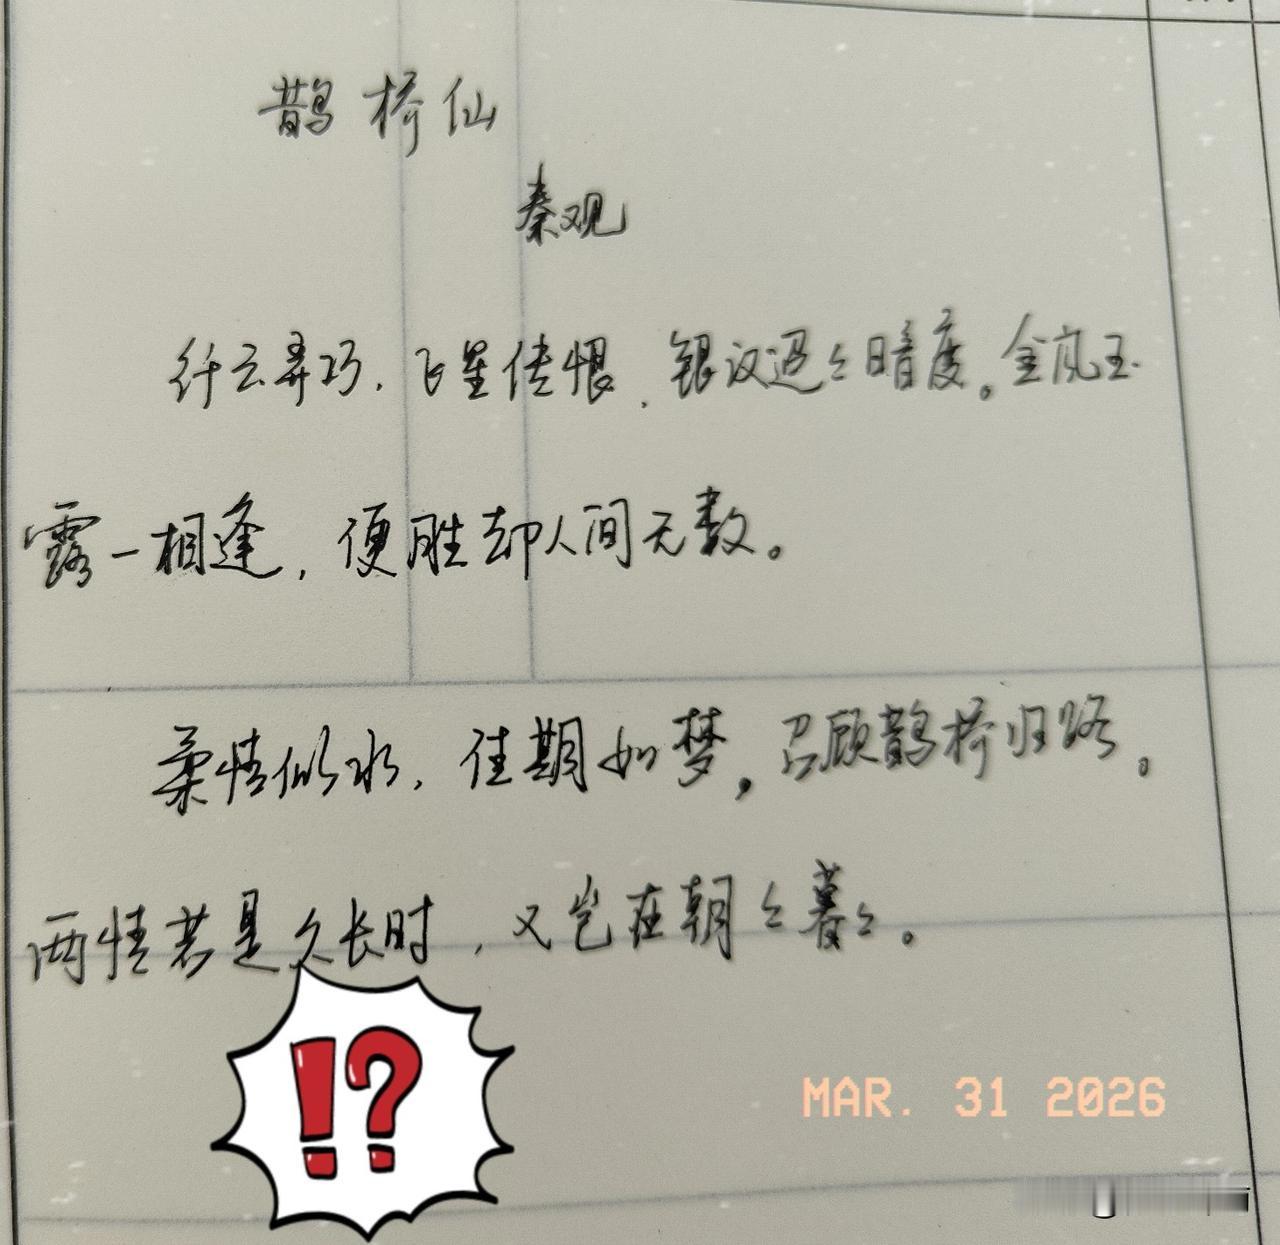 鹊桥仙
秦观
纤云弄巧,飞星传恨,银汉迢々暗度。金风玉
露一相逢,便胜却人间无数。
柔情似水,佳期如梦,忍顾鹊桥归路。
两情若是久长时,又岂在朝々暮々。
!?
MAR. 31 2026